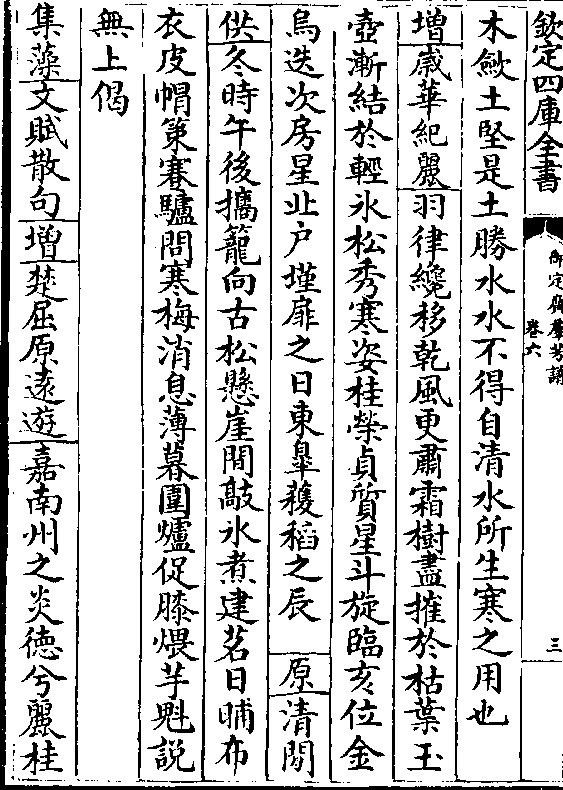 欽定四庫全書
御定佩文廣羣芳譜
卷六
三
木歛土堅是土勝水水不得自清水所生寒之用也
增歲華紀麗羽律纔移乾風更肅霜樹盡摧於枯葉玉
壺漸結於輕氷松秀寒姿桂榮貞質星斗旋臨亥位金
烏迭次房星北户墐扉之日東臯穫稻之辰 原清閟
供冬時午後攜籠向古松懸崖間敲氷煮建茗日晡布
衣皮帽策蹇驢問寒梅消息薄暮圍爐促膝煨芋魁説
無上偈
集藻文賦散句增楚屈原遠遊嘉南州之炎德兮麗桂